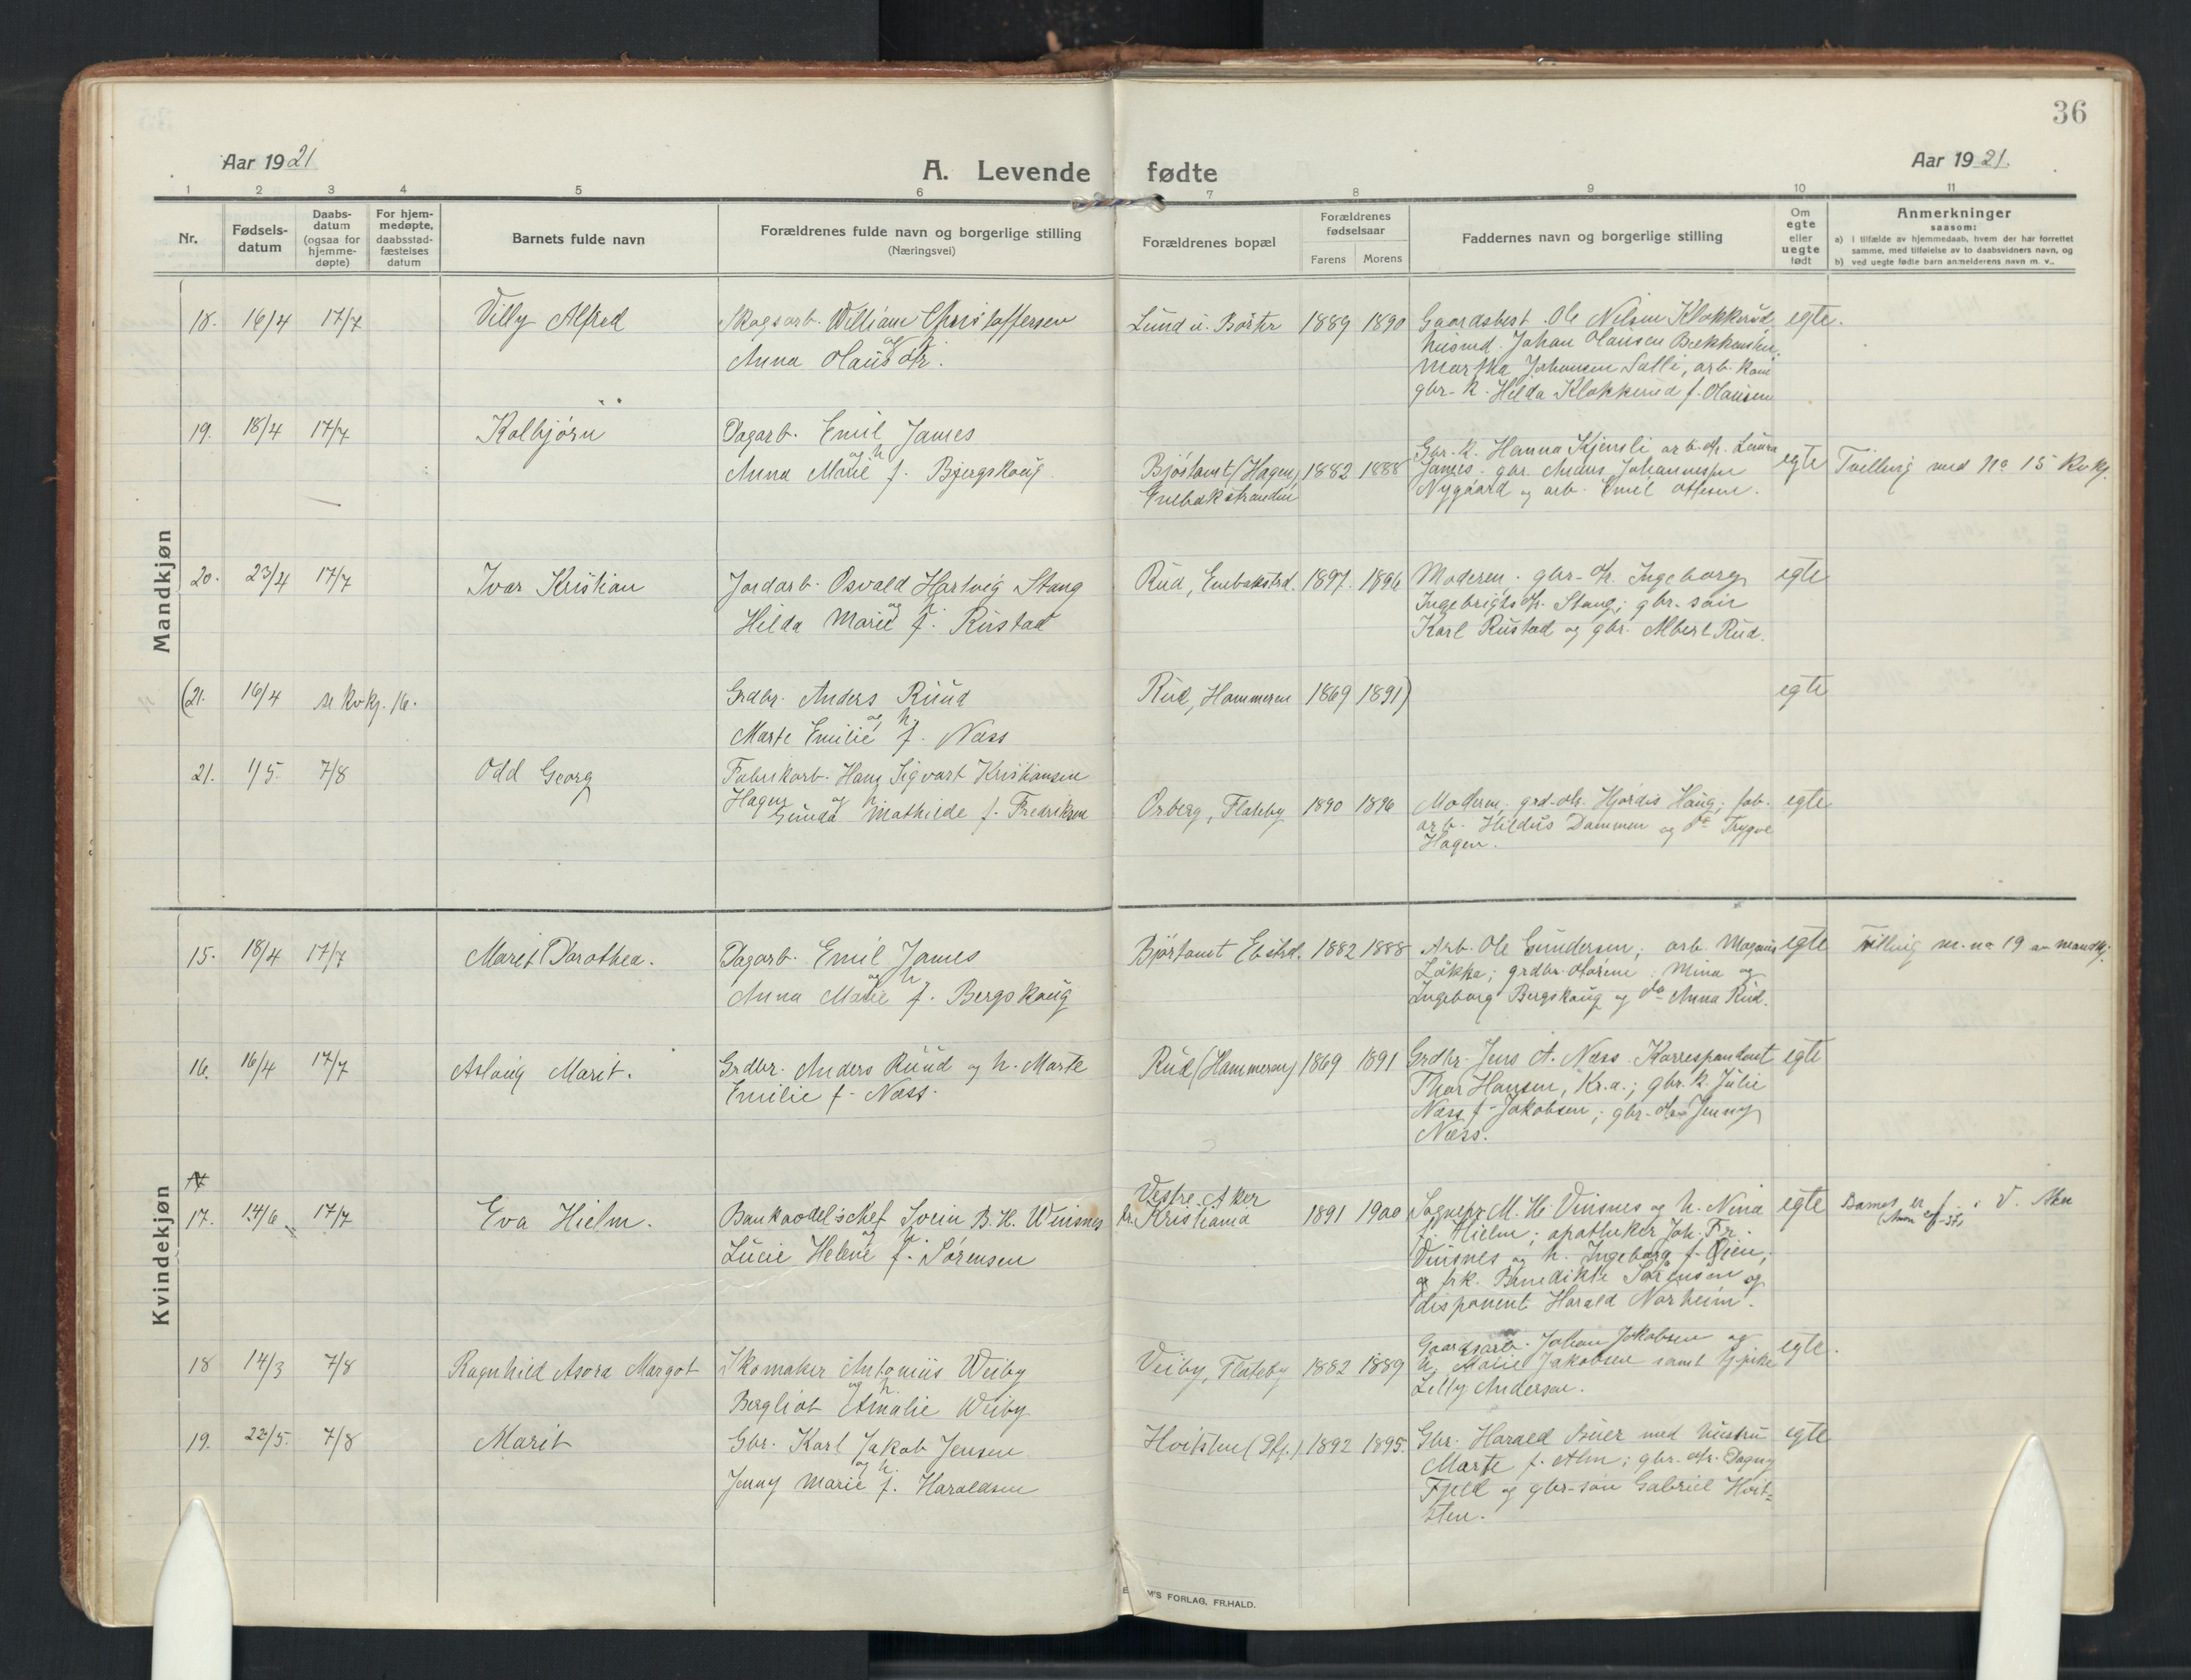 36
Aar 1921
A. Levende fødte
Aar 1921.
1 2 3 4 5 6 7 8 9 10 11
Nr.
Fødsels-
datum
Daabs-
datum
(ogsaa for
hjemme-
døpte)
For hjem-
medøpte,
daabsstad-
fæstelses
datum
Barnets fulde navn
Forældrenes fulde navn og borgerlige stilling
(Næringsvei)
Forældrenes bopæl
Forældrenes
fødselsaar
Farens Morens
Faddernes navn og borgerlige stilling
Om
egte
eller
uegte
født
Anmerkninger
saasom:
a) i tilfælde av hjemmedaab, hvem der har forrettet
samme, med tilføielse av to daabsvidners navn, og
b) ved uegte fødte barn anmelderens navn m. v..
Mandkjøn
18. 16/4 17/7
Villy Alfred
Skogsarb. William Christoffersen
og h.
Anna Olausdtr.
Lund u. Börter 1889 1890
Gaardsbest. Ole Nilsen Klokkerud
husmd. Johan Olausen Bækkensten,
Martha Johansen Salli, arb. kone
gbr. k. Hilda Klokkerud f. Olausen
egte.
19. 18/4 17/7
Kolbjörn
Dagarb. Emil James
og h.
Anna Marie f. Bjergskaug
Bjørtomt (Hagen)
Enebakstranden
1882 1888
Gbr. k. Hanna Kjensli arb. dtr. Laura
James. gbr. Anders Johannessen
Nygaard og arb. Emil Ottesen.
egte
Tvilling med No 15 Kvkj.
20. 23/4 17/7
Ivar Kristian
Jordarb. Osvald Hartvig Stang
og h.
Hilda Marie f. Rustad
Rud, Enebakstrd. 1897. 1896
Moderen. gbr. dtr. Ingeborg
Ingebrigts dtr. Stang; gbr. sön
Karl Rustad og gbr. Albert Rud.
egte
(21. 16/4 se Kvkj. 16.
Grdbr. Anders Ruud
og h.
Marte Emilie f. Næss
Rud, Hammeren 1869 1891)
egte
21. 1/5. 7/8
Odd Georg
Fabrikarb. Hans Sigvart Kristiansen
Hagen og h.
Gunda Mathilde f. Fredriksen
Orberg, Flateby 1890 1896
Moderen. grd. dtr. Hjördis Haug; fab.
arb. Hildus Dammen og do Trygve
Hagen.
egte
Kvindekjøn
15. 18/4 17/7
Marit Dorothea.
Dagarb. Emil James
og h.
Anna Marie f. Bergskaug
Bjørtomt Ebstrd. 1882 1888
Arb. Ole Gundersen; arb. Magnus
Løkka; grdbr. døtrene Mina og
Ingeborg Bergskaug og do Anna Rud.
egte
Tvilling m. no 19 av mandkj.
16. 16/4 17/7
Aslaug Marit.
Grdbr. Anders Ruud og h. Marte
Emilie f. Næss.
Rud (Hammeren) 1869 1891
Grdbr. Jens A. Næss. Korrespondent
Thor Hansen, Kr.a.; gbr. k. Julie
Næss f. Jakobsen; gbr. dtr. Jenny
Næss.
egte
17. 14/6 17/7
Eva Hielm.
Bankavdel.schef Svein B. H. Winsnes
og h.
Lucie Helene f. Sørensen
Vestre Aker
Kristiania
1891 1900
Sogneprs. M. H. Vinsnes og h. Nina
f. Hielm; apotheker Joh. Fr.
Vinsnes og h. Ingeborg f. Øien;
frk. Benedikte Sørensen og
disponent Harald Norheim.
egte
Barnet er f. i V. Aker
18 14/3 7/8
Ragnhild Asora Margot
Skomaker Antonius Weiby
og h.
Bergliot Amalie Weiby
Veiby, Flateby 1882 1889
Gaardsarb. Johan Jakobsen og
h. Marie Jakobsen samt tj.pike
Lilly Andersen.
egte.
19. 22/5. 7/8
Marit
Gbr. Karl Jakob Jensen
og h.
Jenny Marie f. Haraldsen
Hvitsten 1892 1895.
Gbr. Harald Buer med hustru
Marte f. Alm; gbr. dtr. Dagny
Fjeld og gbr. søn Gabriel Hvit-
sten.
egte
M'S FORLAG, FR.HALD.